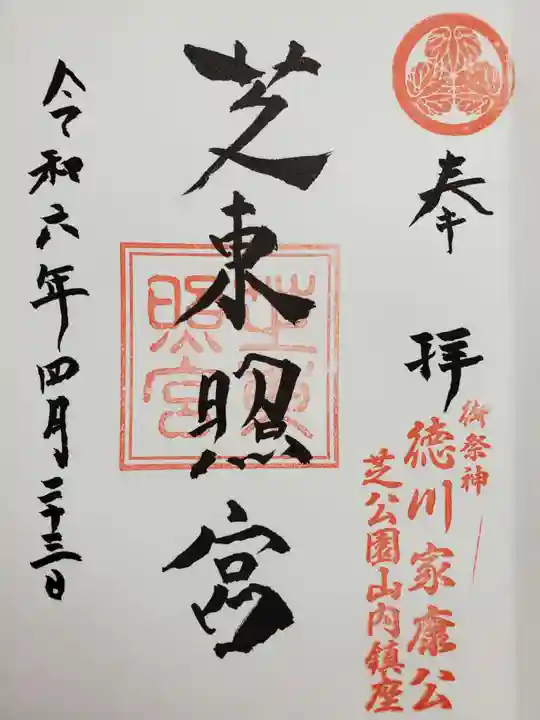 奉拝
御祭神
徳川家康公
芝公園山内鎮座
芝東照宮
芝東照宮
令和六年四月二十三日